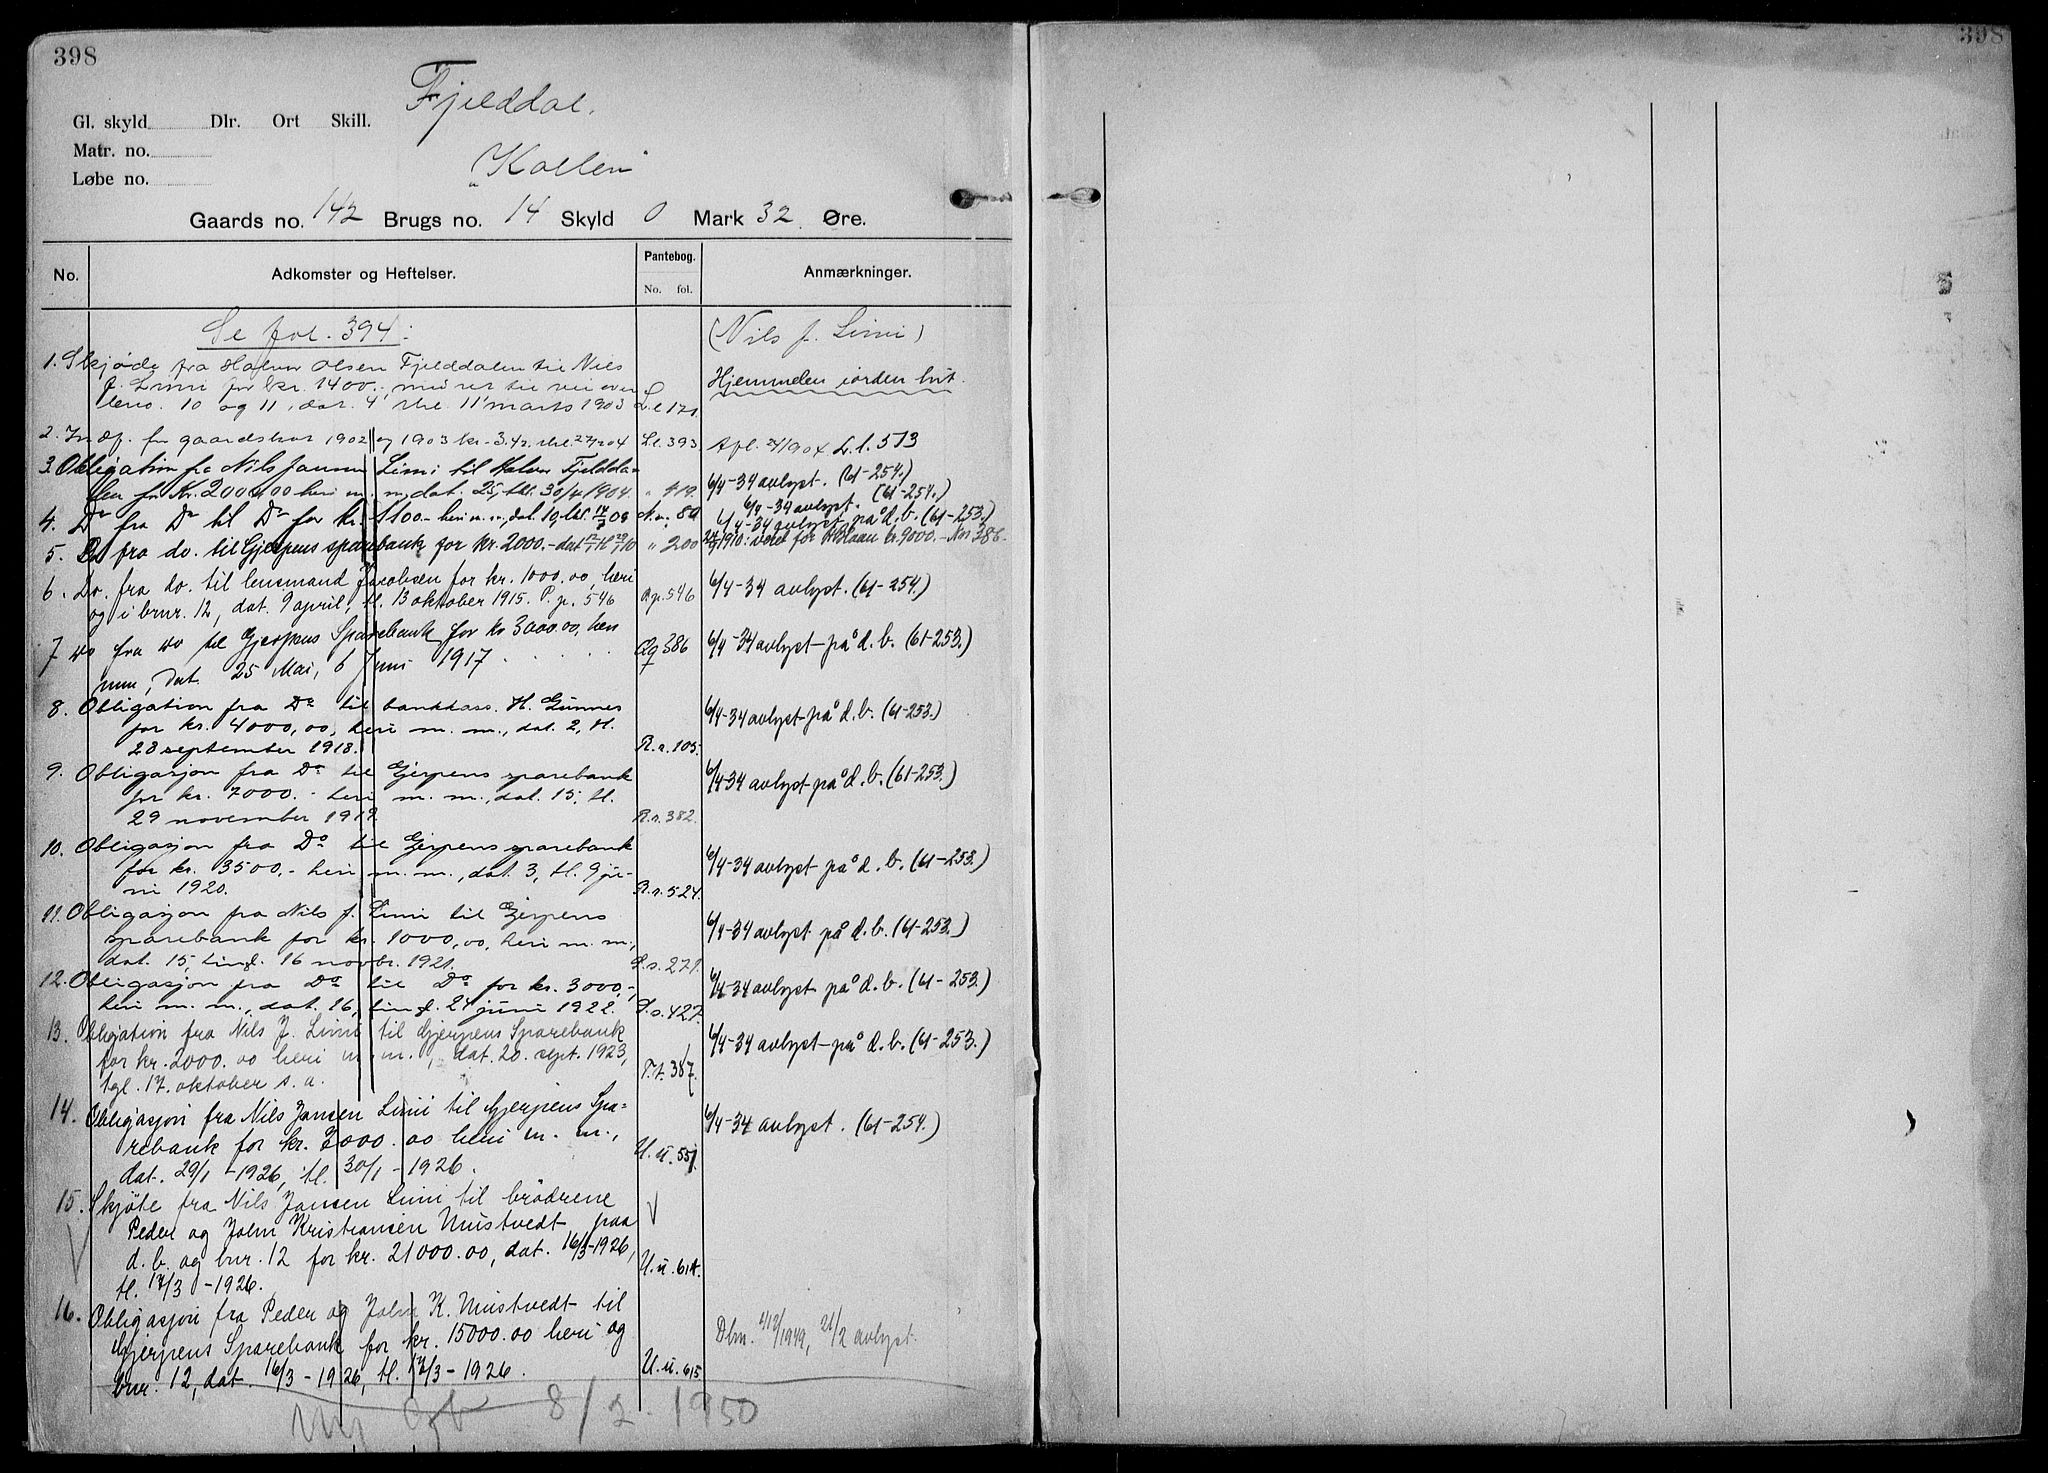 398
398
Fjelddal.
Gl. skyld Dlr. Ort Skill.
Matr. no.
Løbe no.
"Kollen"
Gaards no. 142 Brugs no. 14 Skyld 0 Mark 32 Øre.
No. Adkomster og Heftelser. Pantebog. No. fol. Anmærkninger.
Se fol. 394: (Nils J. Limi)
1. Skjøde fra Halvor Olsen Fjelddalen til Niels
J. Limi for kr. 1400,- med ret til vei over Hjemmelen iorden hit.
brno. 10 og 11, dat. 4 11 marts 1903 L.l 121.
2. for gaardskat 1902 og 1903 kr. 3.42. L.l. 393 Afl. 1904 L.l. 573
3. Obligation fra Nils Jansen Limi til Halvor Fjeldda-
len for Kr. 2000,00 heri m. m, dat. 25, tbl. 30/4 1904. " 419. 6/4-34 avlyst. (61-254.)
6/4-34 avlyst. (61-254.)
4. Do fra Do til Do for kr. 1100- heri m. m, dat. 19, N.n. 80 6/4-34 avlyst på d.b. (61-253.)
5. Do fra do. til Gjerpens sparebank for kr. 2000.- " 200 1910: veket for kr. 9000.- 386.
6. Do. fra do. til lensmand Jacobsen for kr. 1000.00, heri 6/4-34 avlyst. (61-254.)
og i brnr. 12, dat. 9 april, tl. 13 oktober 1915. P. p. 546 P.p. 546
7 do fra do til Gjerpens Sparebank for kr 3000.00, heri
mm, dat. 25 Mai, 6 Juni 1917 Qq 386 6/4-34 avlyst på d. b. (61-253.)
8. Obligation fra Do til bankkass. H. Gunnes
for kr. 4000,00, heri m. m., dat. 2, tl. 6/4-34 avlyst på d. b. (61-253.)
28 september 1918. R.r. 105.
9. Obligasjon fra Do til Gjerpens sparebank
for kr. 7000.- heri m. m., dat. 15, tl. 6/4-34 avlyst på d. b. (61-253.)
29 november 1919. R.r. 382.
10. Obligasjon fra Do til Gjerpens sparebank
for kr. 3500,- heri m. m., dat. 3, tl. 9 ju- 6/4-34 avlyst på d. b. (61-253.)
ni 1920. R.r. 524.
11. Obligasjon fra Nils J. Limi til Gjerpens
sparebank for kr. 1000,00, heri m. m., 6/4-34 avlyst på d. b. (61-253.)
dat. 15, tingl. 16 novbr. 1921. S.s. 271.
12. Obligasjon fra Do til Do for kr. 3000,-, 6/4-34 avlyst på d. b. (61-253.)
heri m. m., dat. 16, tingl. 21 juni 1922. S.s. 427.
13. Obligation fra Nils J. Limi til Gjerpens Sparebank
for kr. 2000.00 heri m. m., dat. 20. sept. 1923, 6/4-34 avlyst på d. b. (61-253.)
tgl. 17. oktober s. a. T.t. 387.
14. Obligasjon fra Nils Jansen Limi til Gjerpens Spa-
rebank for kr. 7000.00 heri m. m., 6/4-34 avlyst. (61-254.)
dat. 29/1-1926, tl. 30/1-1926. U.u. 551.
15. Skjøte fra Nils Jansen Limi til brødrene
Peder og John Kristiansen Mustvedt paa
d. b. og bnr. 12 for kr. 21000.00, dat. 16/3-1926,
tl. 17/3-1926. U.u. 614.
16. Obligasjon fra Peder og John K. Mustvedt til
Gjerpens Sparebank for kr. 15000.00 heri og Dbm. 1949, 21/2 avlyst.
bnr. 12, dat. 16/3-1926, tl. 17/3-1926. U.u. 615
Ny 8/2. 1950